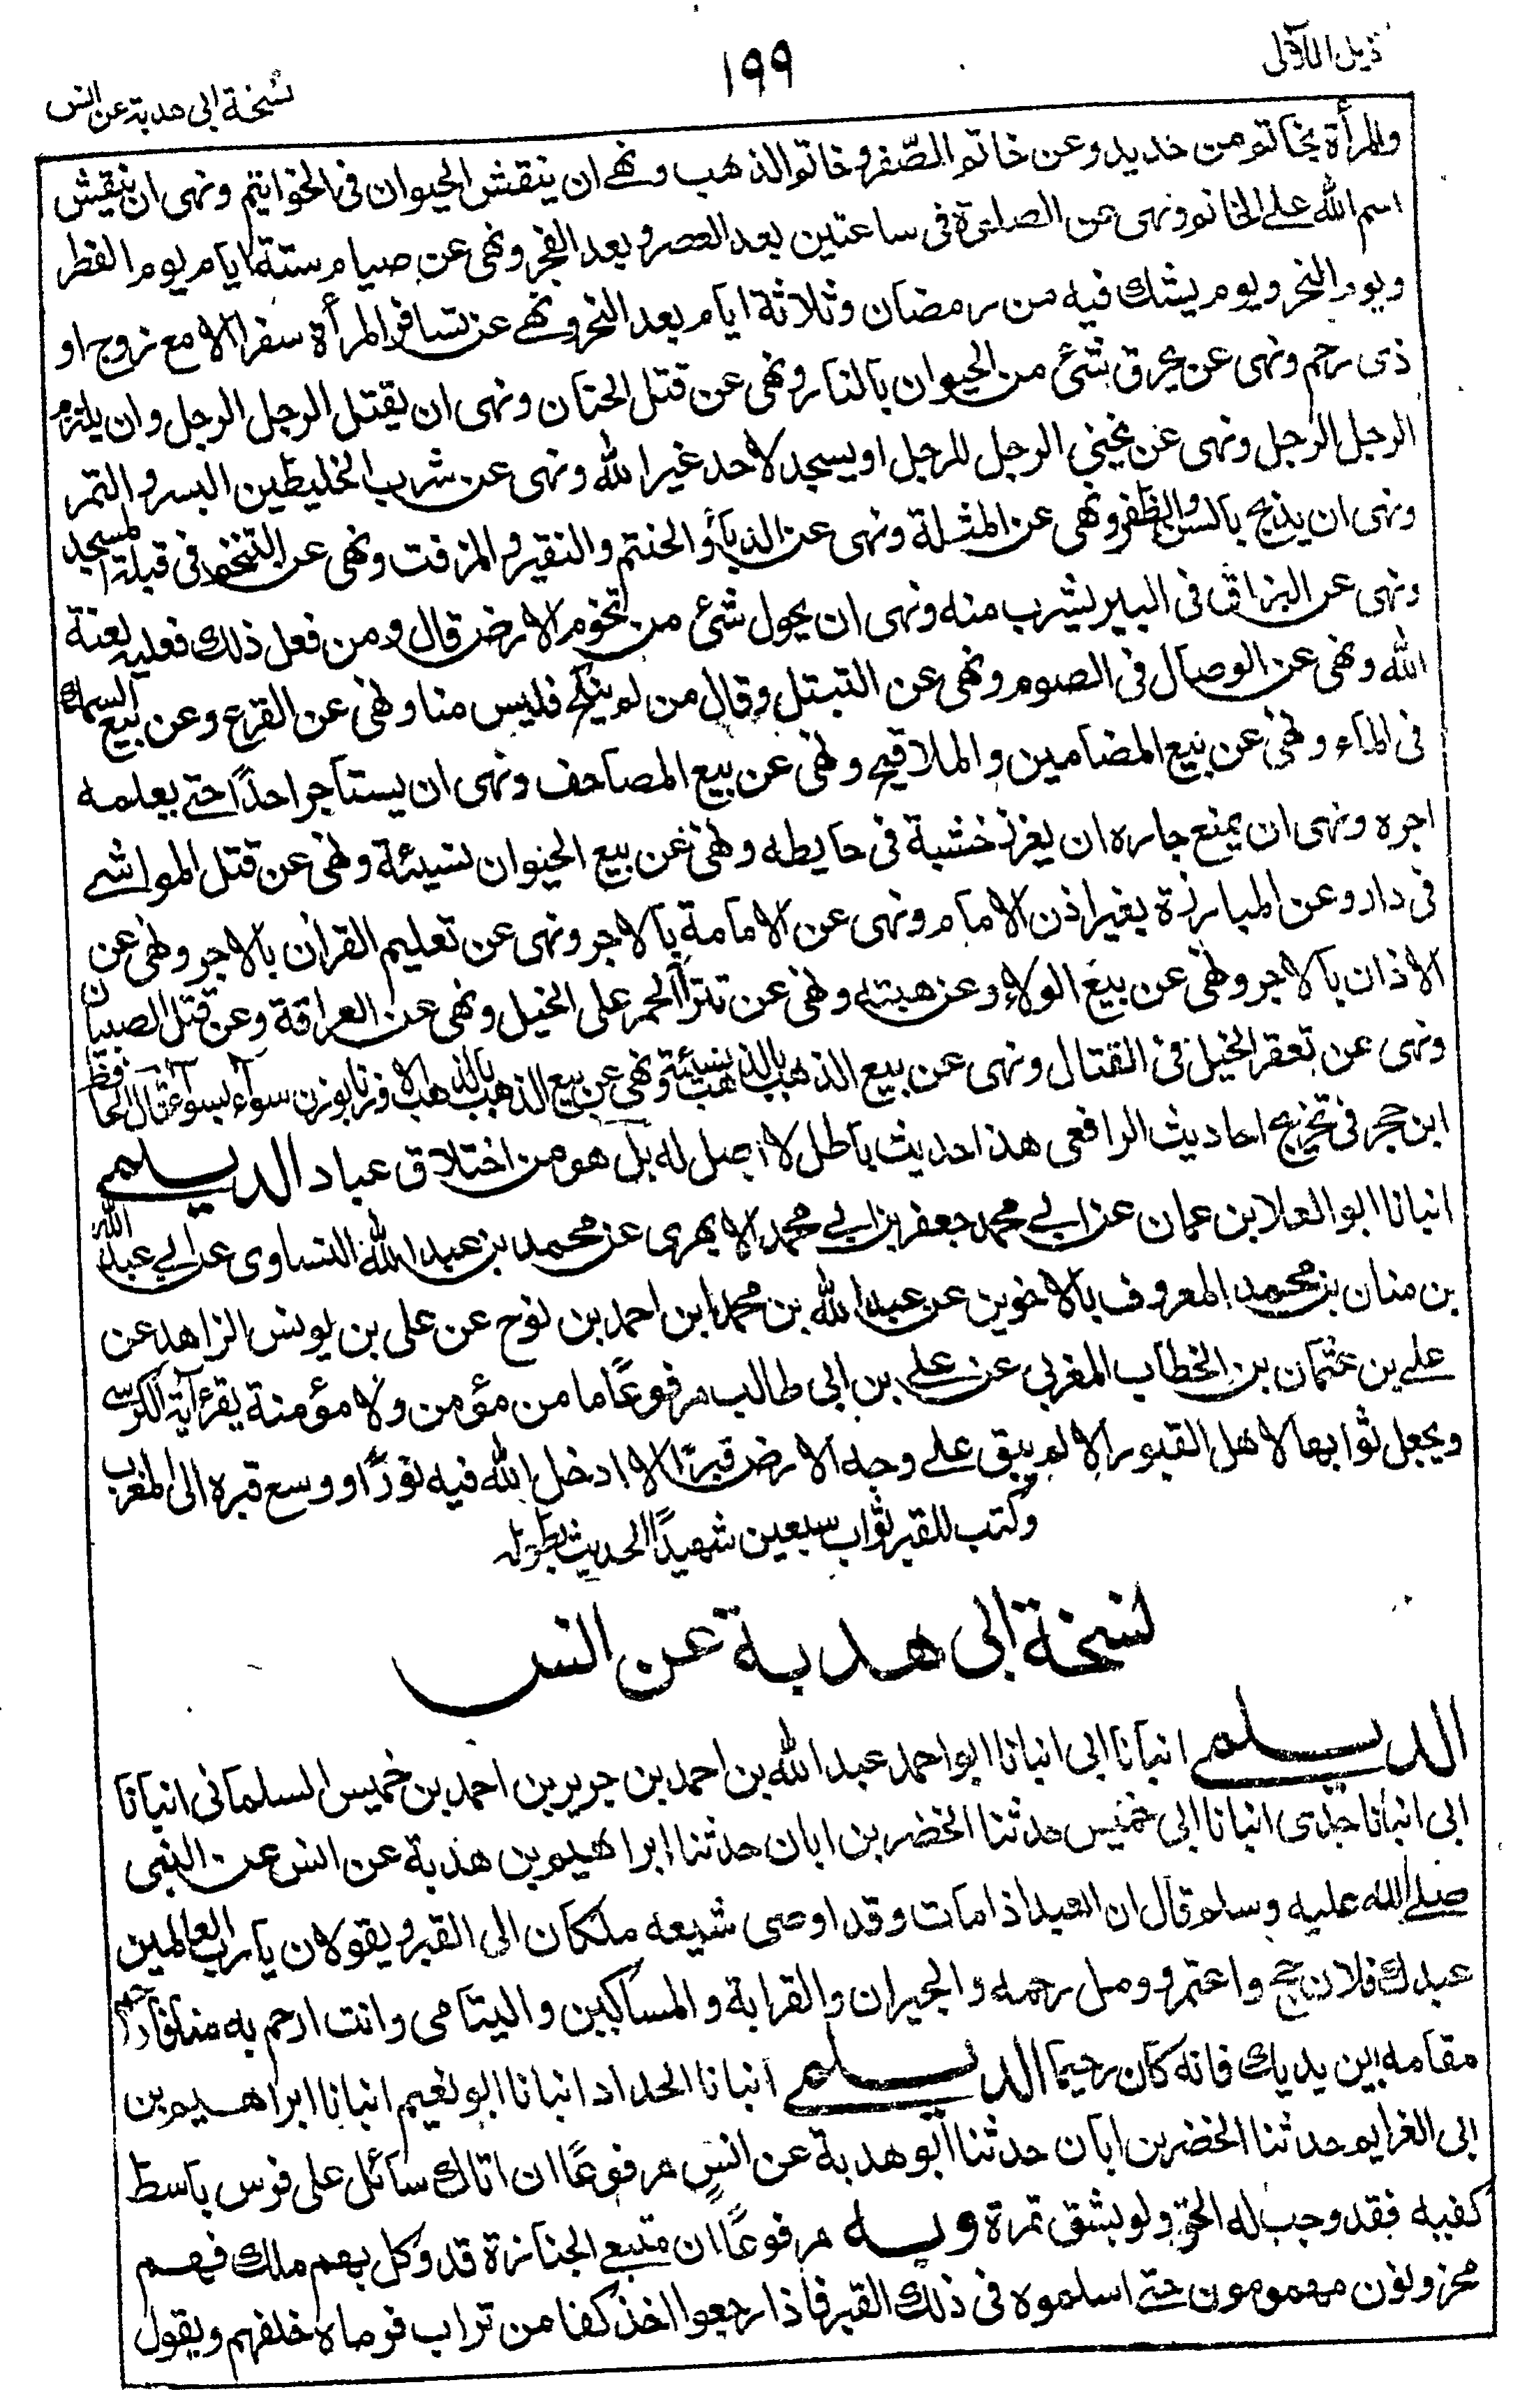 ذيل اللآلى
١٩٩
نسخة ابى هدبة عن انس
والمرأة بخاتم من حديد وعن خاتم الصّفر وخاتم الذهب ونهى ان ينقش الحيوان فى الخواتيم ونهى ان ينقش
اسم الله على الخاتم ونهى عن الصلوة فى ساعتين بعد العصر وبعد الفجر ونهى عن صيام ستة ايام يوم الفطر
ويوم النحر ويوم يشك فيه من رمضان وثلاثة ايام بعد النحر ونهى عن تسافر المرأة سفرا الا مع زوج او
ذى رحم ونهى عن يحرق شئ من الحيوان بالنار ونهى عن قتل الحنان ونهى ان يقتل الرجل الرجل وان يلتزم
الرجل الرجل ونهى عن يحنى الرجل للرجل او يسجد لاحد غير الله ونهى عن شرب الخليطين البسر والتمر
ونهى ان يذبح بالسن والظفر ونهى عن المثلة ونهى عن الدباء والحنتم والنقير والمزفت ونهى عن التنخم فى قبلة المسجد
ونهى عن البزاق فى البير يشرب منه ونهى ان يحول شئ من تخوم الارض قال ومن فعل ذلك فعليه لعنة
الله ونهى عن الوصال فى الصوم ونهى عن التبتل وقال من لم ينكح فليس منا ونهى عن القزع وعن بيع السمك
فى الماء ونهى عن بيع المضامين والملاقيح ونهى عن بيع المصاحف ونهى ان يستاجر احدًا حتى يعلمه
اجره ونهى ان يمنع جاره ان يغرز خشبة فى حايطه ونهى عن بيع الحيوان نسيئة ونهى عن قتل المواشى
فى دار وعن المبارزة بغير اذن الامام ونهى عن الامامة بالاجر ونهى عن تعليم القران بالاجر ونهى عن
الاذان بالاجر ونهى عن بيع الولاء وعن هبته ونهى عن تنزأ الحمر على الخيل ونهى عن العراقة وعن قتل الصبيان
ونهى عن تعقر الخيل فى القتال ونهى عن بيع الذهب بالذهب نسيئة ونهى عن بيع الذهب بالذهب الا وزنا بوزن سواء بسواء قال الحافظ
ابن حجر فى تخريج احاديث الرافعى هذا حديث باطل لا اصل له بل هو من اختلاق عباد الديلمى
انبانا ابو العلا بن عمان عن ابى محمد جعفر بن ابى محمد الابهرى عن محمد بن عبد الله النساوى عن ابى عبد الله
بن منان بن محمد المعروف بالاخوين عن عبد الله بن محمد ابن احمد بن نوح عن على بن يونس الزاهد عن
على بن عثمان بن الخطاب المغربى عن على بن ابى طالب مرفوعًا ما من مؤمن ولا مؤمنة يقرء آية الكرسى
ويجعل ثوابها لاهل القبور الا لم يبق على وجه الارض قبرًا الا ادخل الله فيه نورًا ووسع قبره الى المغرب
وكتب للقبر ثواب سبعين شهيدًا الحديث بطوله
نسخة ابى هدبة عن انس
الديلمى انبانا ابى انبانا ابو احمد عبد الله بن احمد بن جرير بن احمد بن خميس السلمانى انبانا
ابى انبانا جدى انبانا ابى خميس حدثنا الخضر بن ابان حدثنا ابراهيم بن هدبة عن انس عن النبى
صلى الله عليه وسلم قال ان العبد اذا مات وقد اوصى شيعه ملكان الى القبر ويقولان يا رب العالمين
عبدك فلان حج واعتمر ووصل رحمه والجيران والقرابة والمساكين واليتامى وانت ارحم به منا فارحم
مقامه بين يديك فانه كان رحيما الديلمى انبانا الحداد انبانا ابو نعيم انبانا ابراهيم بن
ابى الغرايم حدثنا الخضر بن ابان حدثنا ابو هدبة عن انس مرفوعًا ان اتاك سائل على فرس باسط
كفيه فقد وجب له الحق ولو بشق تمرة وبه مرفوعًا ان متبع الجنازة قد وكل بهم ملك فهم
محزونون مهمومون حتى اسلموه فى ذلك القبر فاذا رجعوا اخذ كفا من تراب فرماه خلفهم ويقول